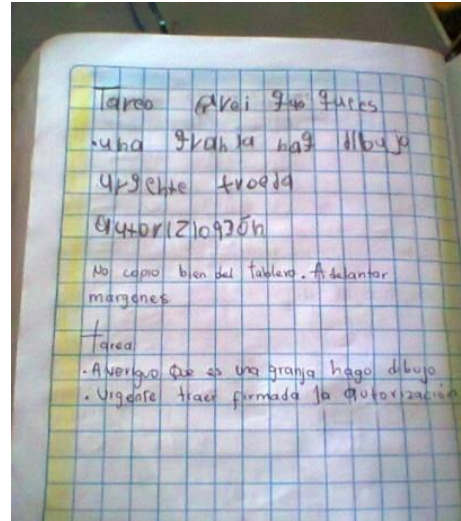 Tareo Arei gua gues
.una granja hag dibujo
urgente troeda
autorizlogación
No copio bien del tablero. Adelantar
margenes
tarea
. Averiguo que es una granja hago dibujo
. Urgente traer firmada la autorización